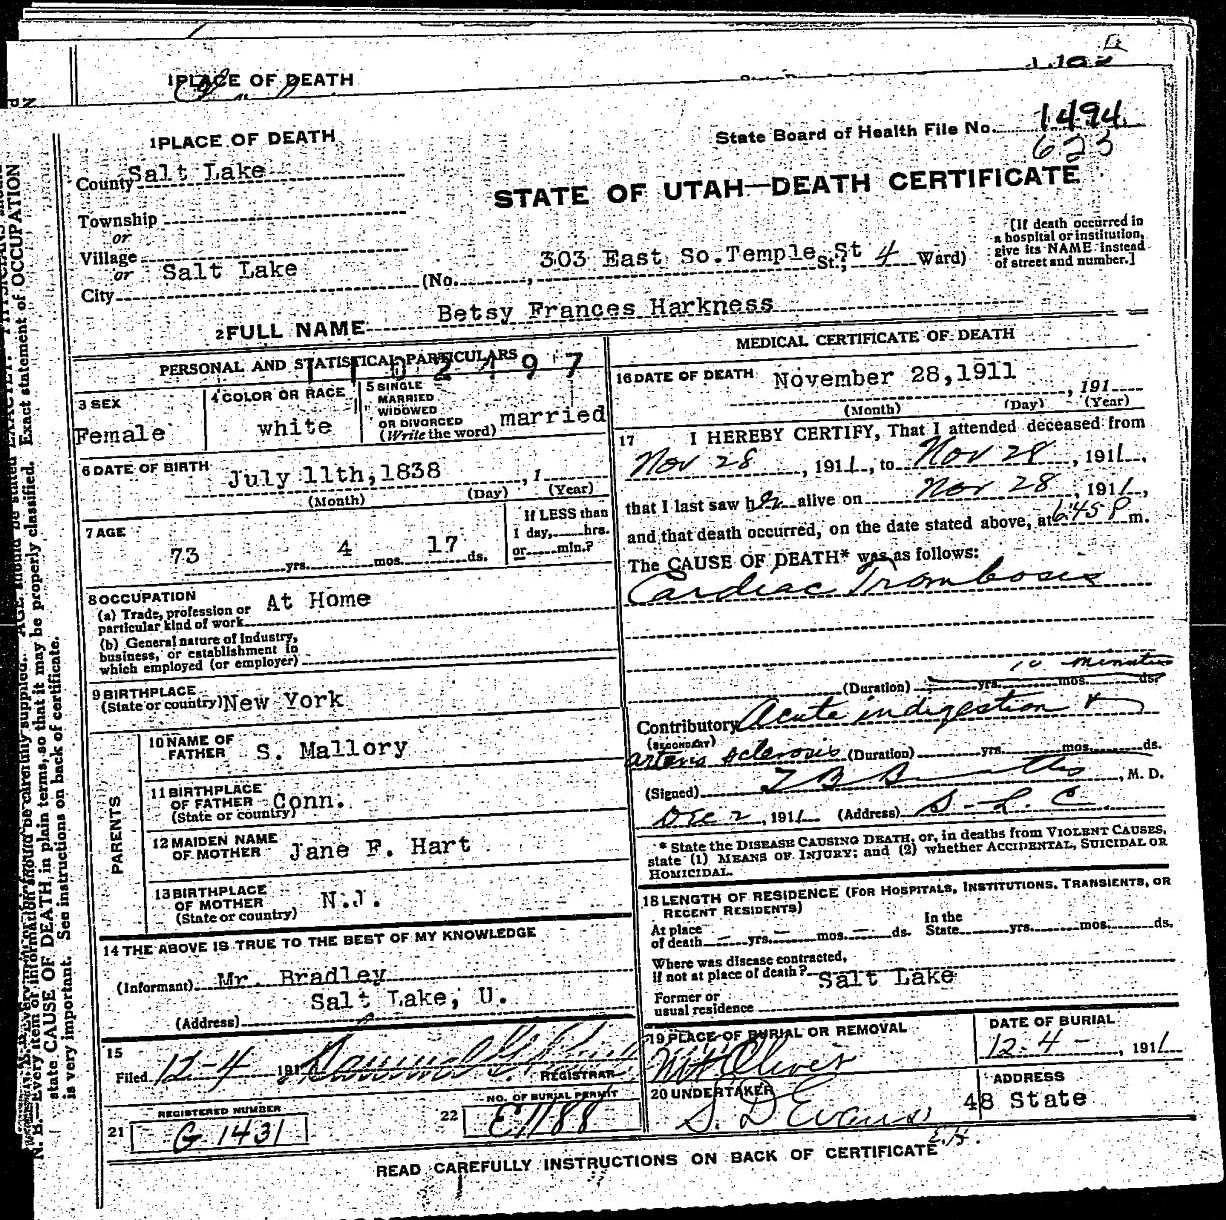 1 PLACE OF DEATH
1 PLACE OF DEATH
State Board of Health File No. 1494
623
County Salt Lake
STATE OF UTAH—DEATH CERTIFICATE
Township
or
Village
or
City Salt Lake
(No. 303 East So.Temple St St.; 4 Ward)
[If death occurred in
a hospital or institution,
give its NAME instead
of street and number.]
2 FULL NAME Betsy Frances Harkness
PERSONAL AND STATISTICAL PARTICULARS
3 SEX
Female
4 COLOR OR RACE
white
5 SINGLE
MARRIED
WIDOWED
OR DIVORCED
(Write the word) married
6 DATE OF BIRTH
July 11th, 1838, 1
(Month) (Day) (Year)
7 AGE
73 yrs. 4 mos. 17 ds.
If LESS than
1 day, hrs.
or min.?
8 OCCUPATION
(a) Trade, profession or
particular kind of work At Home
(b) General nature of industry,
business, or establishment in
which employed (or employer)
9 BIRTHPLACE
(State or country) New York
PARENTS
10 NAME OF
FATHER S. Mallory
11 BIRTHPLACE
OF FATHER Conn.
(State or country)
12 MAIDEN NAME
OF MOTHER Jane F. Hart
13 BIRTHPLACE
OF MOTHER N.J.
(State or country)
14 THE ABOVE IS TRUE TO THE BEST OF MY KNOWLEDGE
(Informant) Mr. Bradley
(Address) Salt Lake, U.
15
Filed 12-4 191
REGISTRAR
REGISTERED NUMBER
21 G 1431
NO. OF BURIAL PERMIT
22 E7188
MEDICAL CERTIFICATE OF DEATH
16 DATE OF DEATH November 28, 1911, 191
(Month) (Day) (Year)
17 I HEREBY CERTIFY, That I attended deceased from
Nov 28, 1911, to Nov 28, 1911,
that I last saw her alive on Nov 28, 1911,
and that death occurred, on the date stated above, at 6:45 P m.
The CAUSE OF DEATH* was as follows:
Cardiac Trombosis
10 minutes
(Duration) yrs. mos. ds.
Contributory Acute indigestion &
(SECONDARY)
arterio sclerosis (Duration) yrs. mos. ds.
(Signed) , M. D.
Dec 2, 1911 (Address) S. L. C.
* State the DISEASE CAUSING DEATH, or, in deaths from VIOLENT CAUSES,
state (1) MEANS OF INJURY; and (2) whether ACCIDENTAL, SUICIDAL OR
HOMICIDAL.
18 LENGTH OF RESIDENCE (FOR HOSPITALS, INSTITUTIONS, TRANSIENTS, OR
RECENT RESIDENTS)
At place
of death — yrs. — mos. — ds.
In the
State yrs. mos. ds.
Where was disease contracted,
if not at place of death? Salt Lake
Former or
usual residence
19 PLACE OF BURIAL OR REMOVAL
Mt Olivet
DATE OF BURIAL
12-4-, 1911
20 UNDERTAKER
S. D. Evans
ADDRESS
48 State
E.H.
READ CAREFULLY INSTRUCTIONS ON BACK OF CERTIFICATE
N. B.—Every item of information should be carefully supplied. AGE should be stated EXACTLY. PHYSICIANS should
state CAUSE OF DEATH in plain terms, so that it may be properly classified. Exact statement of OCCUPATION
is very important. See instructions on back of certificate.